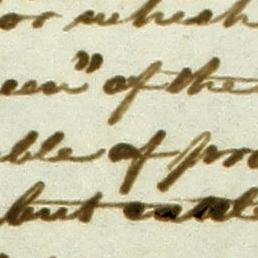 or which
een" of the
ble of pro
but